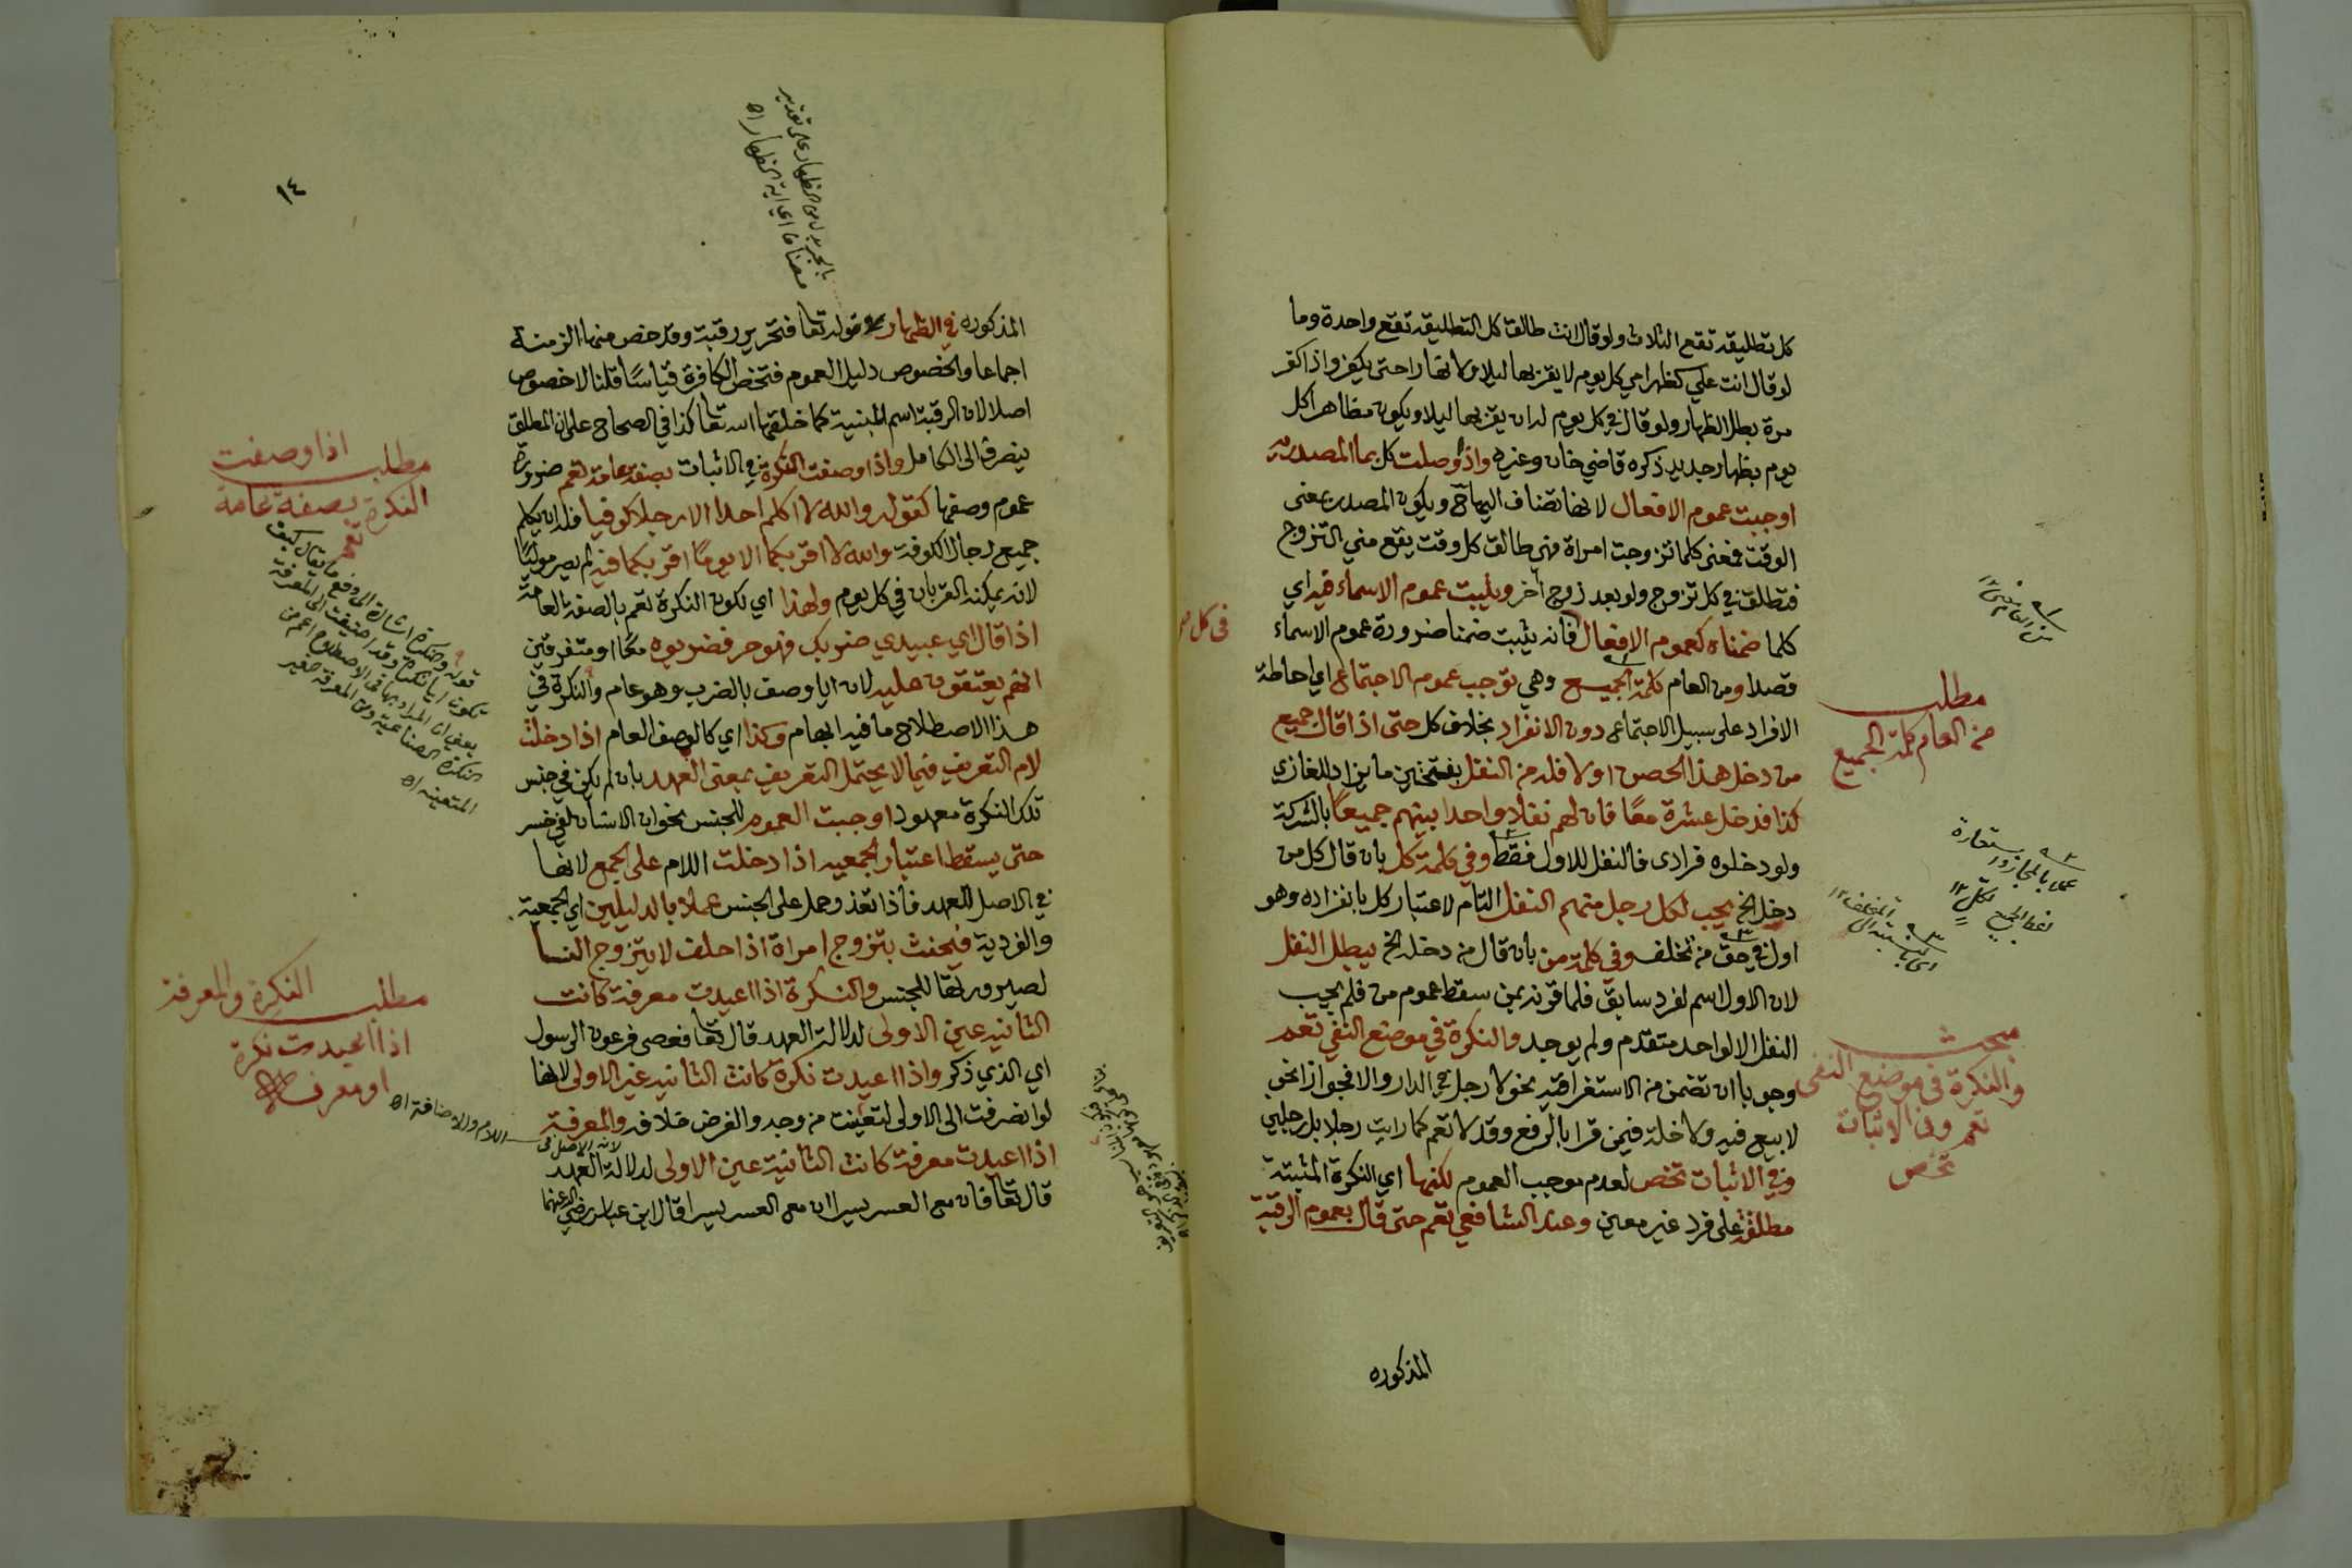 كل تطليقة تقع الثلاث ولو قال انت طالق كل التطليقة تقع واحدة وما
لو قال انت علي كظهر امي كل يوم لا يقربها ليلا ولا نهارا حتى يكفر واذا كفر
مرة بطل الظهار ولو قال في كل يوم له ان يقربها ليلا ويكون مظاهرا كل
يوم بظهار جديد ذكره قاضي خان وغيره واذا وصلت كل بما المصدرية
اوجبت عموم الافعال لانها تضاف اليها ويكون المصدر بمعنى
الوقت فمعنى كلما تزوجت امراة فهي طالق كل وقت يقع مني التزوج
فتطلق في كل تزوج ولو بعد زوج آخر ويثبت عموم الاسماء فيه اي
في كل
كلما ضمنا كعموم الافعال فانه يثبت ضمنا ضرورة عموم الاسماء
قصدا ومن العام كلمة الجميع وهي توجب عموم الاجتماع اي احاطة
الافراد على سبيل الاجتماع دون الانفراد بخلاف كل حتى اذا قال جميع
من دخل هذا الحصن اولا فله من النفل بفتحتين ما يزاد للغازي
كذا فدخل عشرة معا فان لهم نفلا واحدا بينهم جميعا بالشركة
ولو دخلوه فرادى فالنفل للاول فقط وفي كلمة كل بان قال كل من
دخل الخ يجب لكل رجل منهم النفل التام لاعتبار كل بانفراده وهو
اول في حق من تخلف وفي كلمة من بان قال من دخله الخ يبطل النفل
لان الاول اسم لفرد سابق فلما قرنه بمن سقط عموم من فلم يجب
النفل الا لواحد متقدم ولم يوجد والنكرة في موضع النفي تعم
وجوبا ان تضمن من الاستغراقية نحو لا رجل في الدار والا فجوازا نحو
لا بيع فيه ولا خلة فيمن قرا بالرفع وقد لا تعم كما رايت رجلا بل رجلين
وفي الاثبات تخص لعدم موجب العموم لكنها اي النكرة المثبتة
مطلقة على فرد غير معين وعند الشافعي تعم حتى قال بعموم الرقبة
المذكوره
من العام
مطلب
من العام كلمة الجميع
عملا بالمجاز واستعارة
لفظ الجميع لكل ١٢
اي بالنسبة الى المتخلف ١٢
مبحث
والنكرة في موضع النفي
تعم وفي الاثبات
تخص
١٤
المذكوره في الظهار وقوله تعا فتحرير رقبة وقد خص منها الزمنة
اجماعا والخصوص دليل العموم فتخص الكافرة قياسا قلنا لا خصوص
اصلا لان الرقبة اسم للبنية كما خلقها الله تعا كذا في الصحاح على ان المطلق
ينصرف الى الكامل واذا وصفت النكرة في الاثبات بصفة عامة تعم ضرورة
عموم وصفها كقوله والله لا اكلم احدا الا رجلا كوفيا فله ان يكلم
جميع رجال الكوفة والله لا اقربكما الا يوما اقربكما فيه لم يصر موليا
لانه يمكنه القربان في كل يوم ولهذا اي لكون النكرة تعم بالصفة العامة
اذا قال اي عبيدي ضربك فهو حر فضربوه معا او متفرقين
انهم يعتقون عليه لان ايا وصف بالضرب وهو عام والنكرة في
هذا الاصطلاح ما فيه ابهام وكذا اي كالوصف العام اذا دخلت
لام التعريف فيما لا يحتمل التعريف بمعنى العهد بان لم يكن في جنس
تلك النكرة معهود اوجبت العموم للجنس نحو ان الانسان لفي خسر
حتى يسقط اعتبار الجمعية اذا دخلت اللام على الجمع لانها
في الاصل للعهد فاذا تعذر حمل على الجنس عملا بالدليلين اي الجمعية
والفردية فيحنث بتزوج امراة اذا حلف لا يتزوج النسا
لصيرورتها للجنس والنكرة اذا اعيدت معرفة كانت
الثانية عين الاولى لدلالة العهد قال تعا فعصى فرعون الرسول
اي الذي ذكر واذا اعيدت نكرة كانت الثانية غير الاولى لانها
لو انصرفت الى الاولى لتعينت من وجه والفرض خلافه والمعرفة
لانه الاصل في اللام والاضافة اه
اذا اعيدت معرفة كانت الثانية عين الاولى لدلالة العهد
قال تعا فان مع العسر يسرا ان مع العسر يسرا قال ابن عباس رضي الله عنهما
مطلب اذا وصفت
النكرة بصفة عامة
تعم
قوله والنكرة اشارة الى دفع ما يقال كيف
المتعينه اه
مطلب النكرة والمعرفة
اذا اعيدت نكرة
او معرفة